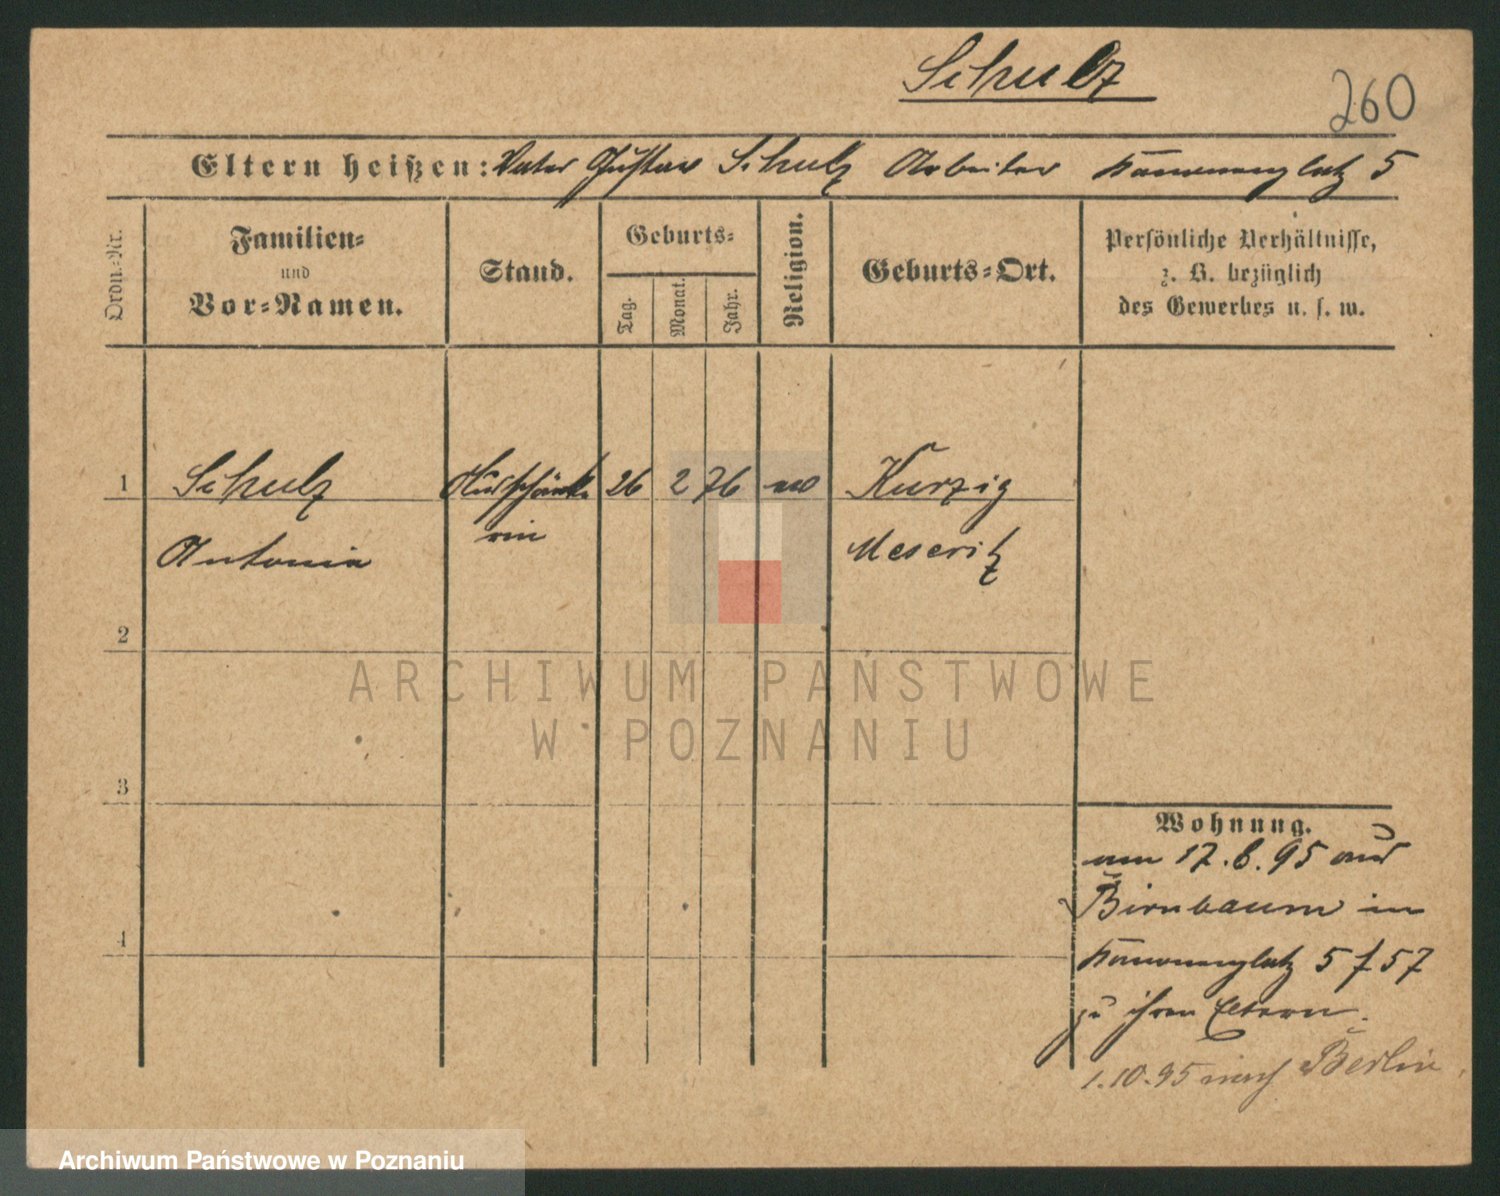 Schulz
260
Eltern heißen: Vater Gustav Schulz Arbeiter Kanonenplatz 5
Ordn.-Nr.
Familien-
und
Vor-Namen.
Stand.
Geburts-
Tag.
Monat.
Jahr.
Religion.
Geburts-Ort.
Persönliche Verhältnisse,
z. B. bezüglich
des Gewerbes u. s. w.
1 Schulz 26 2 76 ev Kurzig
rin
Antonia Meseritz
2
ARCHIWUM PAŃSTWOWE
W POZNANIU
3
Wohnung.
am 17.6.95 aus
Birnbaum in
4
Kanonenplatz 5 f 57
zu ihren Eltern.
1.10.95 nach Berlin.
Archiwum Państwowe w Poznaniu